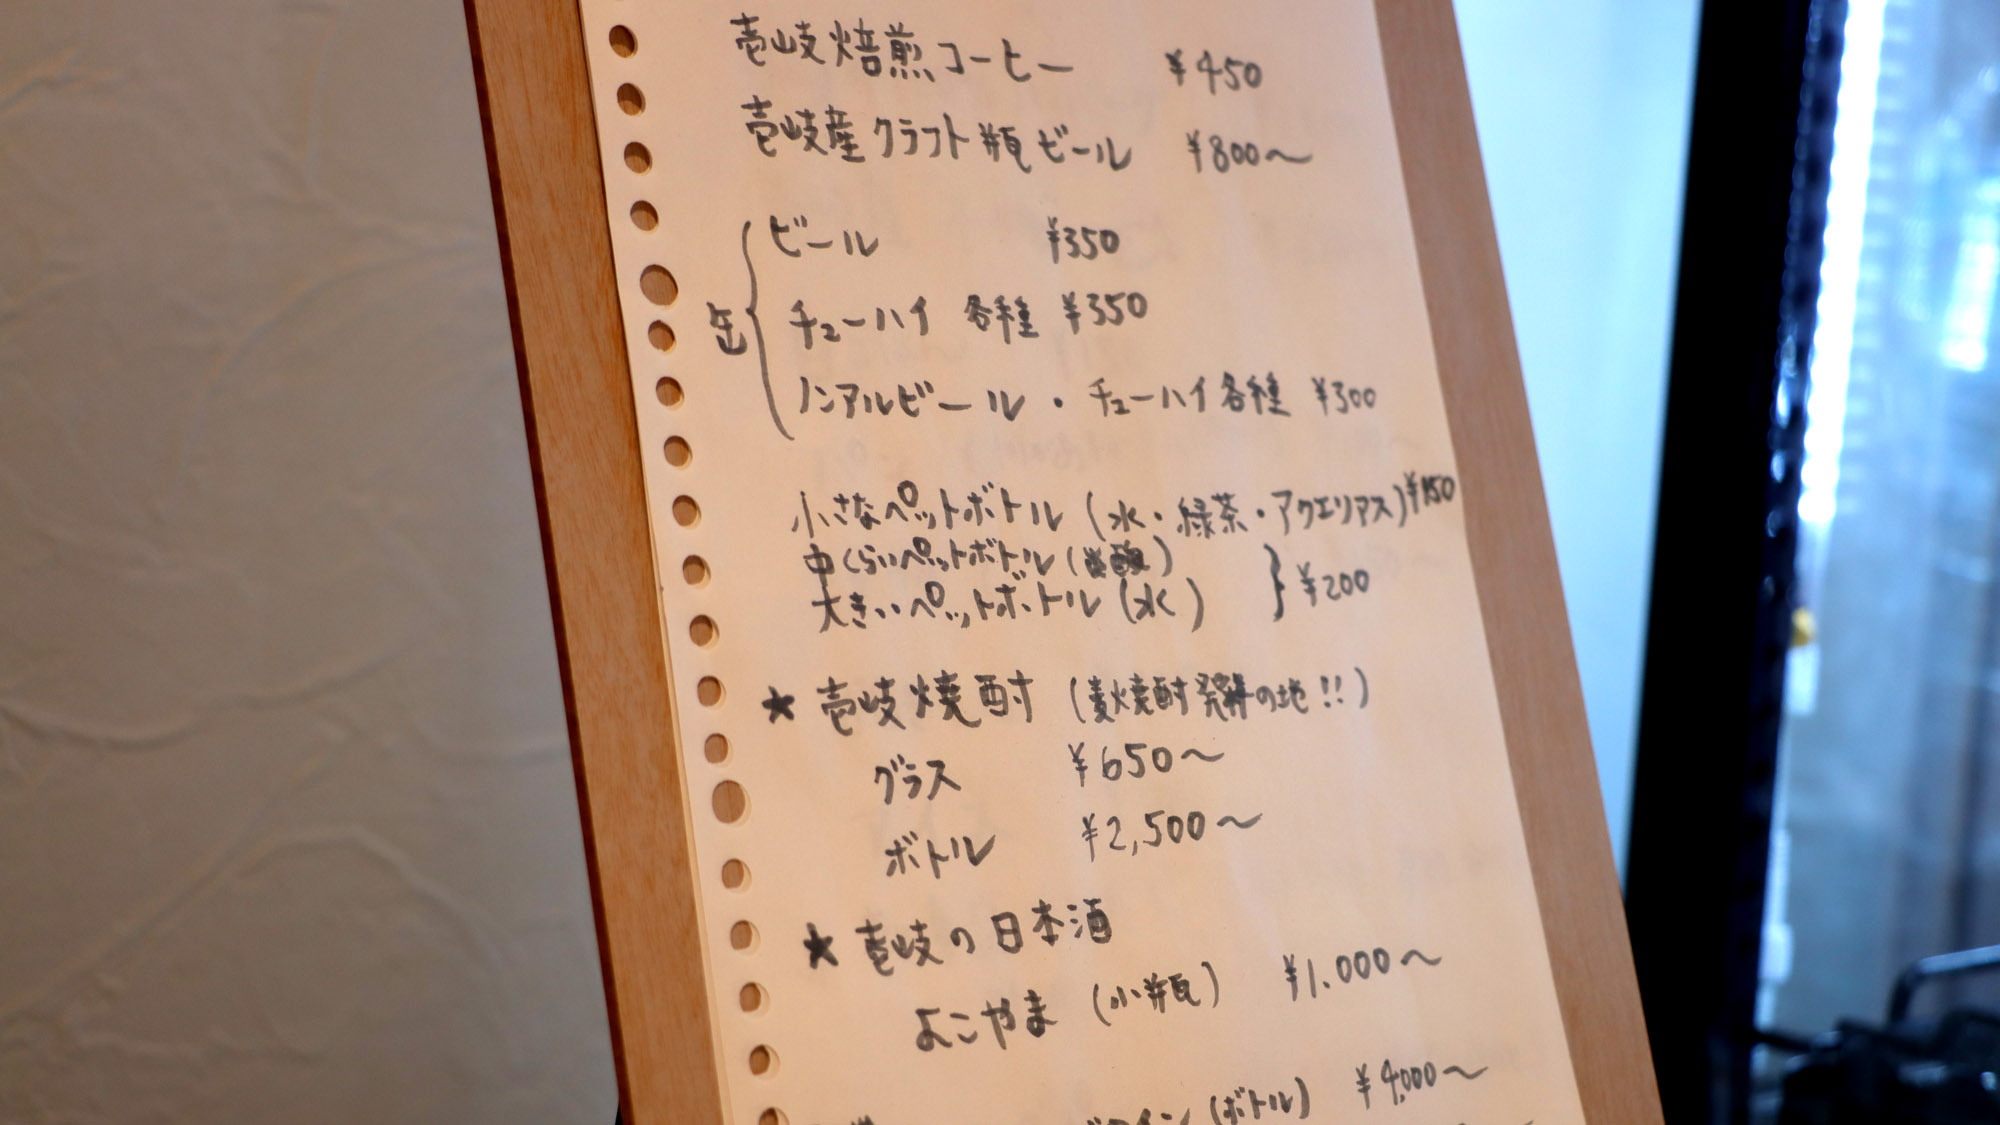 壱岐焙煎コーヒー ¥450
壱岐産クラフト瓶ビール ¥800〜
缶
ビール ¥350
チューハイ 各種 ¥350
ノンアルビール・チューハイ各種 ¥300
小さなペットボトル(水・緑茶・アクエリアス)¥150
中くらいペットボトル(炭酸)
大きいペットボトル(水) ¥200
★ 壱岐焼酎 (麦焼酎発祥の地!!)
グラス ¥650〜
ボトル ¥2,500〜
★ 壱岐の日本酒
よこやま (小瓶) ¥1.000〜
(ボトル) ¥4,000〜